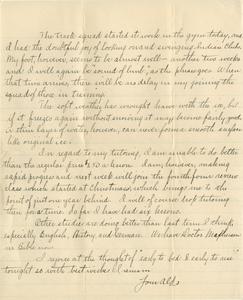 The track squad started its work in the gym today, and
I had the doubtful joy of looking on and swinging Indian Clubs.
My foot, however, seems to be almost well — another two weeks
and I will again be "sound of limb", as the phrase goes. When
that time arrives, there will be no delay in my joining the
squad of those in training.
The soft weather has wrought havoc with the ice, but
if it freezes again without snowing it may become fairly good.
A thin layer of water, however, can never form a smooth surface
like original ice.
In regard to my tutoring, I am unable to do better
than the regular $ an hour. I am, however, making
rapid progress and next week will join the fourth form review
class which started at Christmas, which brings me to the
point of just one year behind. I will of course drop tutoring
then for a time. So far I have had six lessons.
Other studies are doing better than last term I think,
especially English, History, and German. We have Doctor
in Bible now.
I rejoice at the thought of "early to bed & early to rise"
tonight so with best wishes I remain
Your